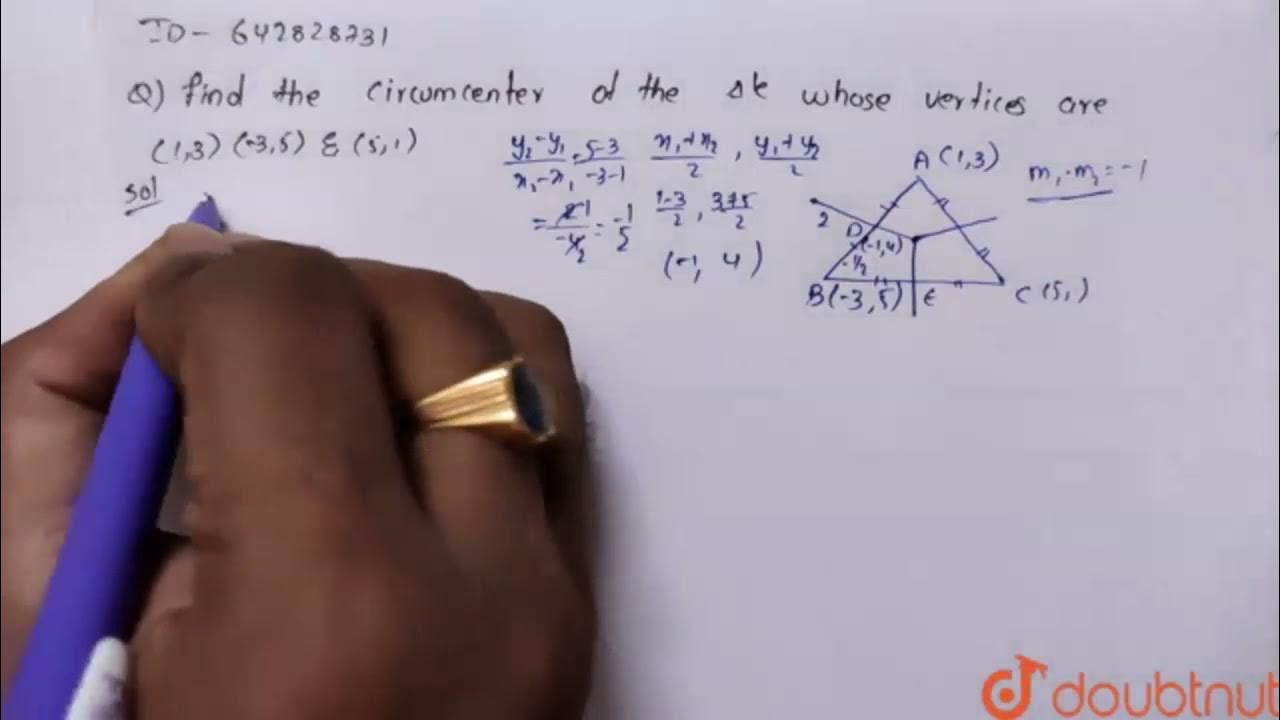 ID - 642828731
Q) find the circumcenter of the Δle whose vertices are
(1,3) (-3,5) & (5,1)
sol
y₂-y₁/x₂-x₁ = 5-3/-3-1
= 2 1/-4 2 = -1/2
x₁+x₂/2 , y₁+y₂/2
1-3/2 , 3+5/2
(-1, 4)
A (1,3)
m₁·m₂ = -1
2
D (-1,4)
-1/2
B(-3,5) E C (5,)
doubtnut